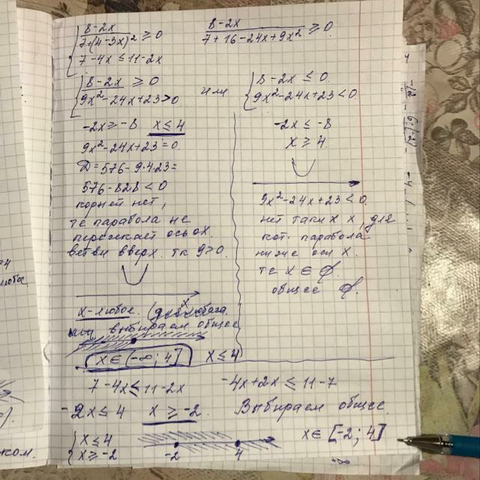 { 8-2x / 7+(4-3x)² ≥ 0
7-4x ≤ 11-2x
8-2x / 7+16-24x+9x² ≥ 0
{ 8-2x ≥ 0
9x²-24x+23>0
или
{ 8-2x ≤ 0
9x²-24x+23<0
-2x ≥ -8 x ≤ 4
9x²-24x+23=0
Д=576-9·4·23=
576-828<0
корней нет,
те парабола не
пересекает ось ох.
ветви вверх. тк 9>0.
x-любое.
выбираем общее
x ∈ (-∞; 4] x ≤ 4
-2x ≤ -8
x ≥ 4
9x²-24x+23<0
нет таких x, где
кот. парабола
ниже оси x.
те x ∈ ∅.
общее ∅.
7-4x ≤ 11-2x -4x+2x ≤ 11-7
-2x ≤ 4 x ≥ -2 Выбираем общее
{ x ≤ 4
x ≥ -2
-2 4
x ∈ [-2; 4]